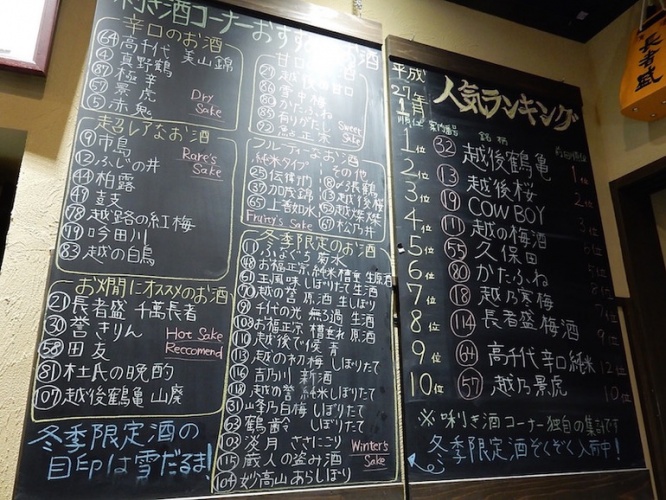 利き酒コーナーおすすめ
辛口のお酒
64 高千代 美山錦
4 真野鶴
87 極辛
57 景虎
5 赤鬼
Dry
Sake
超レアなお酒
9 市島
12 ふじの井
44 柏露
49 喜支
78 越路の紅梅
19 吟田川
83 越の白鳥
Rare's
Sake
お燗にオススメのお酒
21 長者盛 千萬長者
30 誉きりん
58 田友
81 杜氏の晩酌
107 越後鶴亀 山廃
Hot Sake
Reccomend
冬季限定酒の
目印は雪だるま!
甘口
雪中梅
80 かたふね
85 有りがたし
Sweet
Sake
フルーティーなお酒
純米タイプ
25 伝衛門
37 加茂錦
65 上善如水
Fruity's Sake
その他
〆張鶴
13 越後桜
52 越後燦燦
67 松乃井
冬季限定のお酒
11 ふなぐち菊水
48 お福正宗 純米槽 生原酒
51 王風味 しぼりたて生酒
70 越の誉 原酒 生しぼり
91 千代の光 無ろ過 生酒
108 お福正宗 槽垂れ 原酒
110 越後で候 青
113 越の初梅 しぼりたて
116 吉乃川 新酒
118 越の誉 純米しぼりたて
31 越乃白梅 しぼりたて
62 鶴齢 しぼりたて
102 淡月 ささにごり
115 蔵人の盗み酒
104 妙高山 あらしぼり
Winter's
Sake
平成
27年
1月
人気ランキング
順位 案内番号 銘柄
1位 32 越後鶴亀 1位
2位 13 越後桜 2位
3位 19 COWBOY 3位
4位 111 越の梅酒
5位 55 久保田
6位 80 かたふね
7位 18 越乃寒梅
8位 114 長者盛梅酒
9位 64 高千代辛口純米 12位
10位 57 越乃景虎
※味りき酒コーナー独自の集計です
冬季限定酒ぞくぞく入荷中!
長者盛